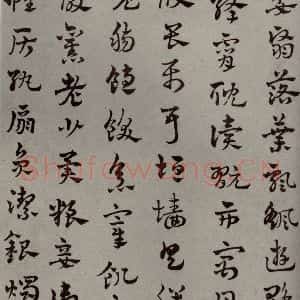 委翳落葉飄颻遊鵾
絳霄耽讀翫市寓目
畏屬耳垣牆具膳
充腸飽飫烹宰飢
故舊老少異糧妾御
帷房紈扇圓潔銀燭
Shufawang.CN